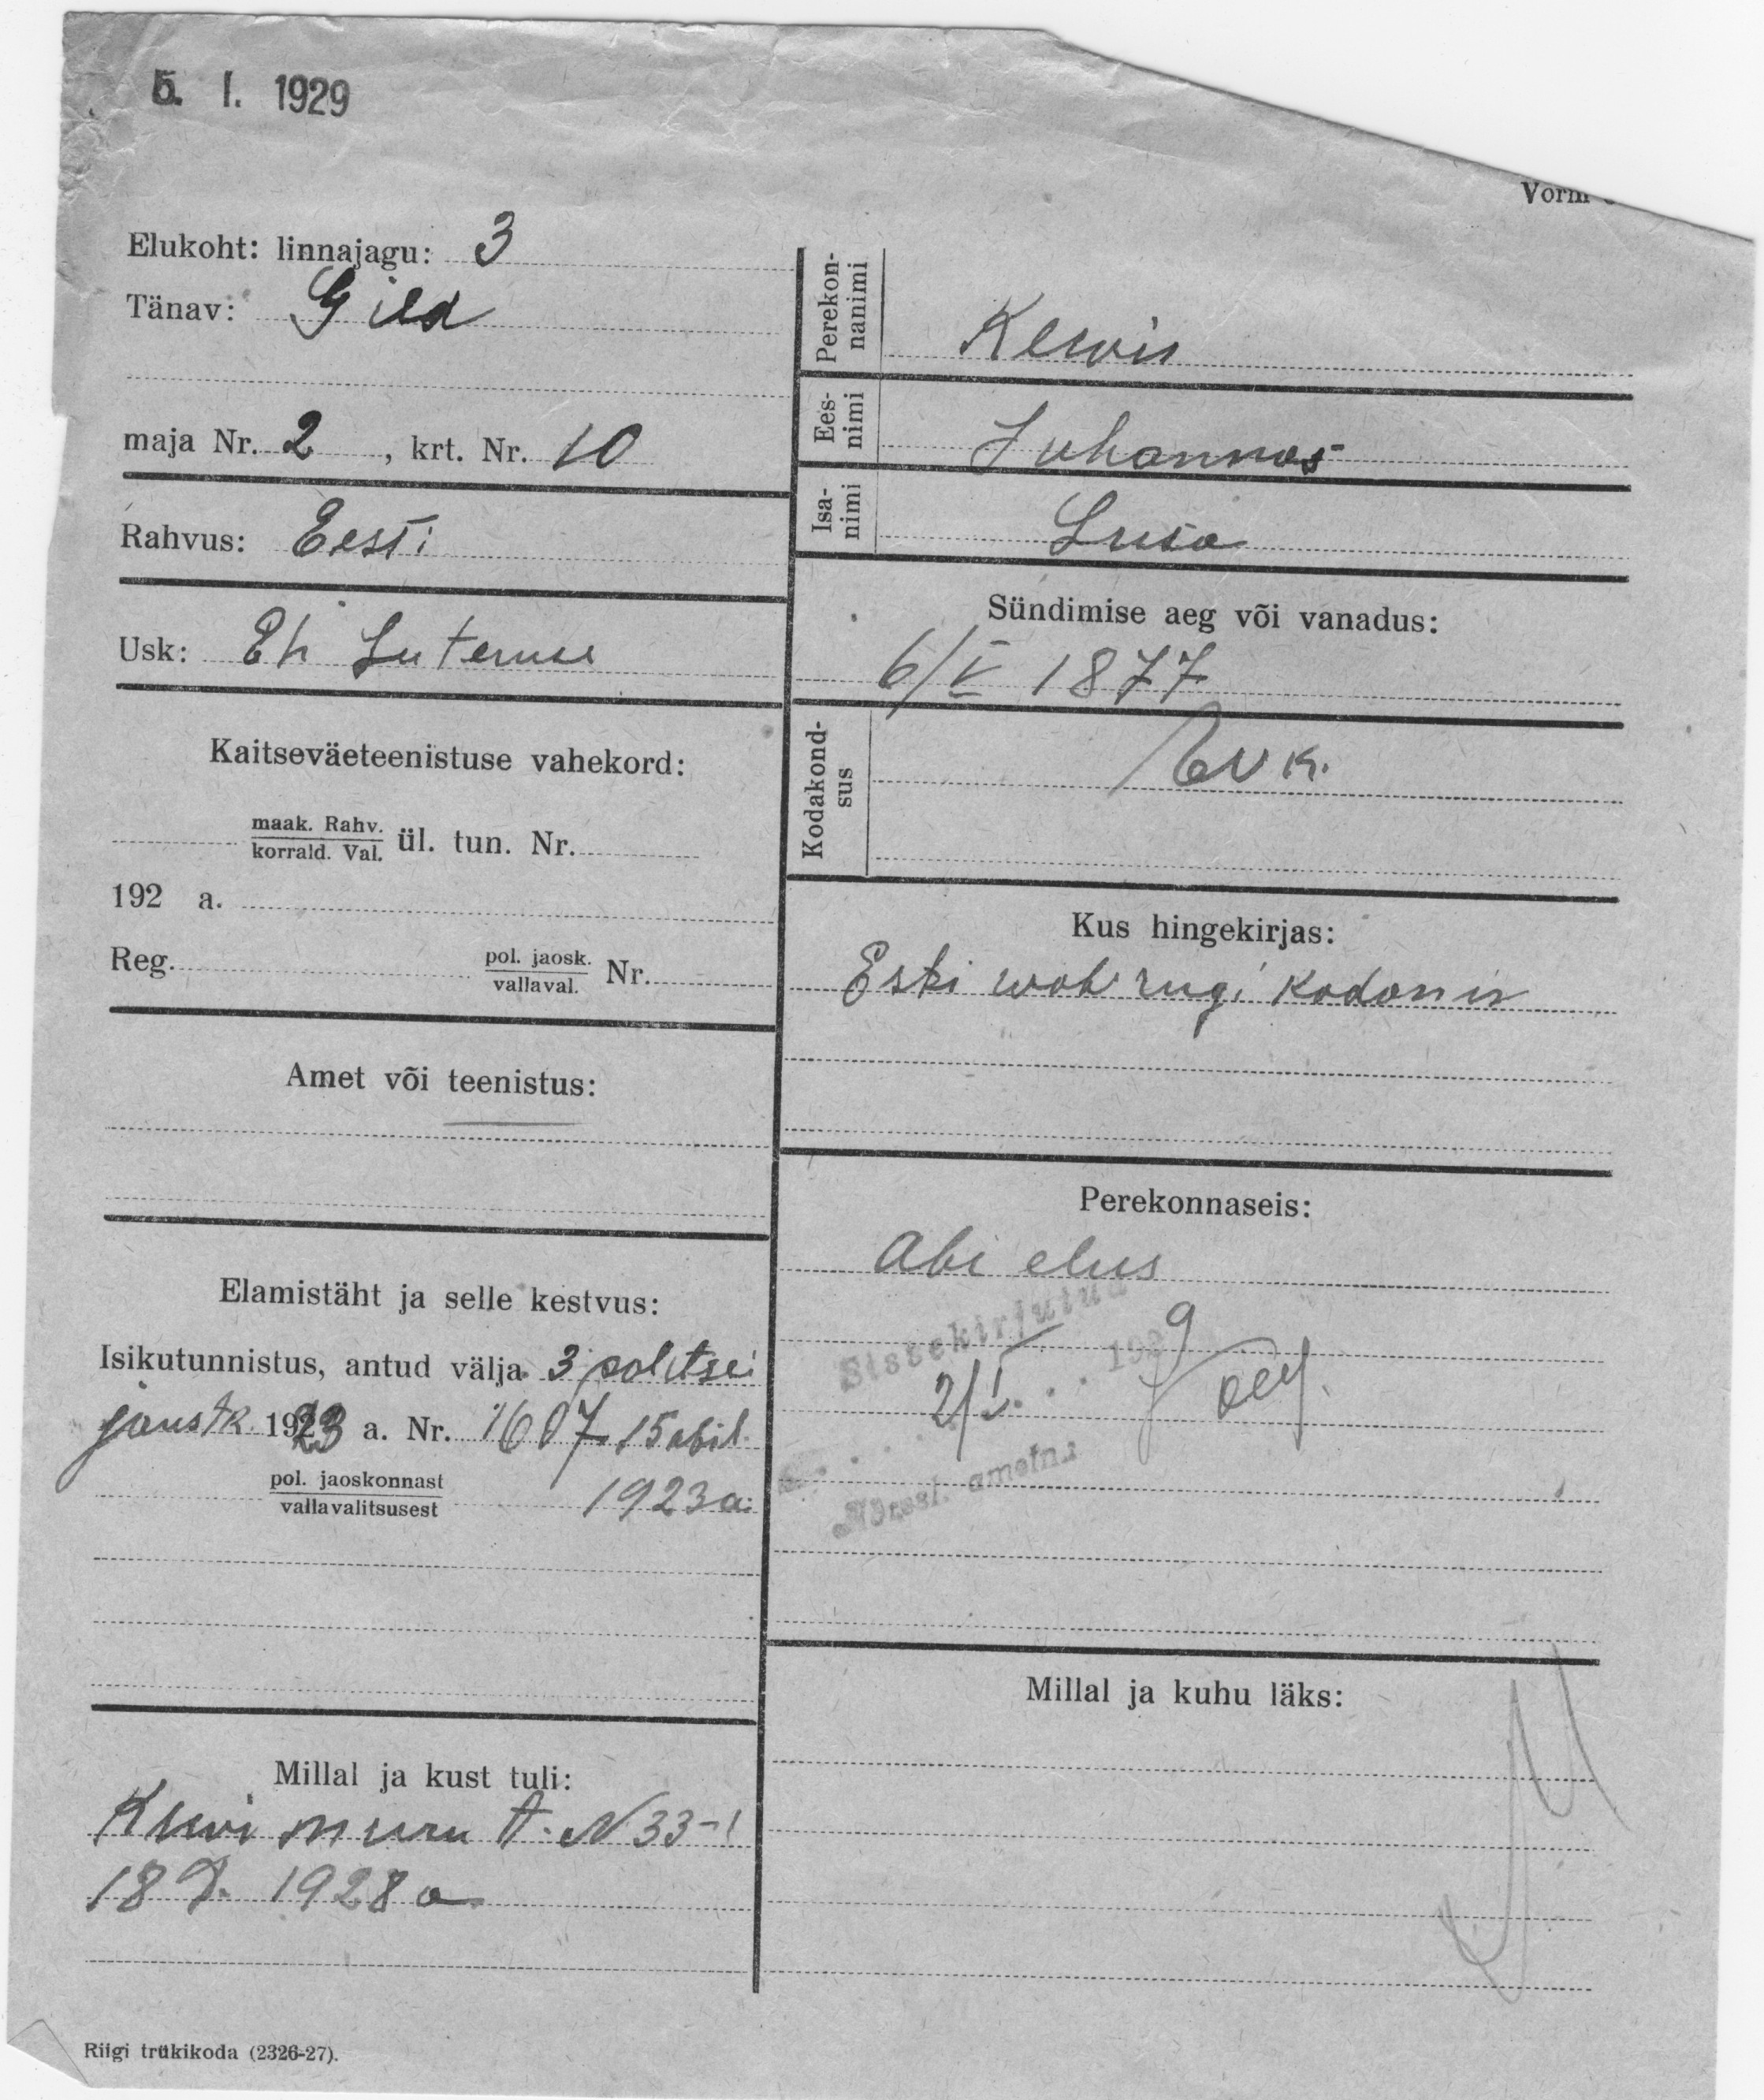 5. I. 1929
Vorm
Elukoht: linnajagu: 3
Tänav: Gild
maja Nr. 2, krt. Nr. 10
Rahvus: Eesti
Usk: Ev Luteruse
Kaitseväeteenistuse vahekord:
maak. Rahv.
korrald. Val. ül. tun. Nr.
192 a.
Reg. pol. jaosk.
vallaval. Nr.
Amet või teenistus:
Elamistäht ja selle kestvus:
Isikutunnistus, antud välja 3 politsei
jaustk. 1923 a. Nr. 1607 15 abil
pol. jaoskonnast
vallavalitsusest 1923 a.
Millal ja kust tuli:
Kiwi muru t. N 33-1
18 1928 a
Riigi trükikoda (2326-27).
Perekon-
nanimi
Ees-
nimi Juhannes
Isa-
nimi
Sündimise aeg või vanadus:
6/V 1877
Kodakond-
sus
Kus hingekirjas:
Esti wab rugi kodanin
Perekonnaseis:
Abi elus
Sissekirjutud
2/I. 1929
Adressl. ametn.
Millal ja kuhu läks: